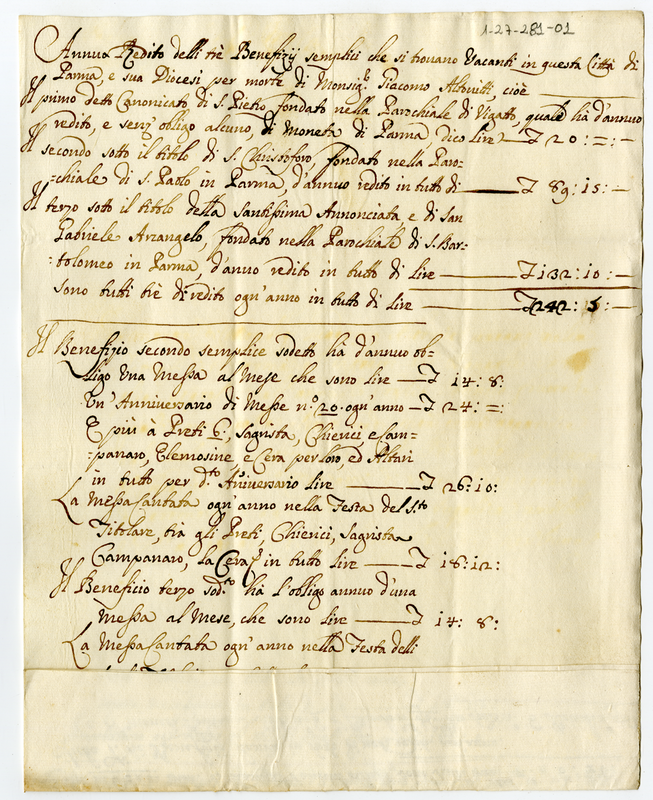 1-27-281-01
Annuo Redito delli tre Benefizij semplici che si trouano Vacanti in questa Città di
Parma, e sua Diocesi per morte di Monsig.r Giacomo Altouitti, cioè
Il primo detto Canonicato di S. Pietro, fondato nella Parochiale di Vigatto, quale hà d'annuo
redito, e senz'obligo alcuno, di Moneta di Parma dico lire £ 20 : = : -
Il secondo sotto il titolo di S. Christoforo, fondato nella Paro=
=chiale di S. Paolo in Parma, d'annuo redito in tutto di £ 89 : 15 : -
Il terzo sotto il titolo della Santissima Annonciata e di San
Gabriele Arcangelo, fondato nella Parochiale di S. Bar=
=tolomeo in Parma, d'annuo redito in tutto di lire £ 132 : 10 : -
Sono tutti trè di redito ogn'anno in tutto di lire £ 242 : 5 : -
Il Benefizio secondo semplice sodetto hà d'annuo ob=
ligo Una Messa al Mese che sono lire £ 14 : 8 :
Un'Anniversario di Messe n.o 20. ogn'anno £ 24 : = :
E più à Preti 6, Sagrista, Chierici e Cam=
=panaro, Elemosine e Cera per loro, ed Altari
in tutto per d.to Aniversario lire £ 26 : 10 :
La Messa Cantata ogn'anno nella Festa del S.to
Titolare, trà gli Preti, Chierici, Sagrista
Campanaro, la Cera in tutto lire £ 18 : 12 :
Il Beneficio terzo sod.to hà l'obligo annuo d'una
Messa al Mese, che sono lire £ 14 : 8 :
La Messa Cantata ogn'anno nella Festa delli